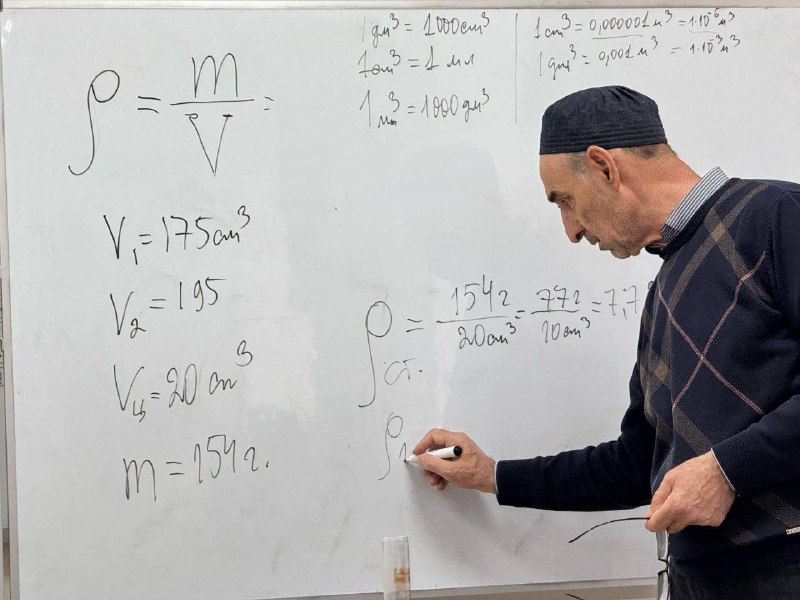 ρ = m/V =
1 дм³ = 1000 см³
1 см³ = 1 мл
1 м³ = 1000 дм³
1 см³ = 0,000001 м³ = 1·10⁻⁶ м³
1 дм³ = 0,001 м³ = 1·10⁻³ м³
V₁ = 175 см³
V₂ = 195
Vц = 20 см³
m = 154 г.
ρ ст. = 154 г/20 см³ = 77 г/10 см³ = 7,7
ρ